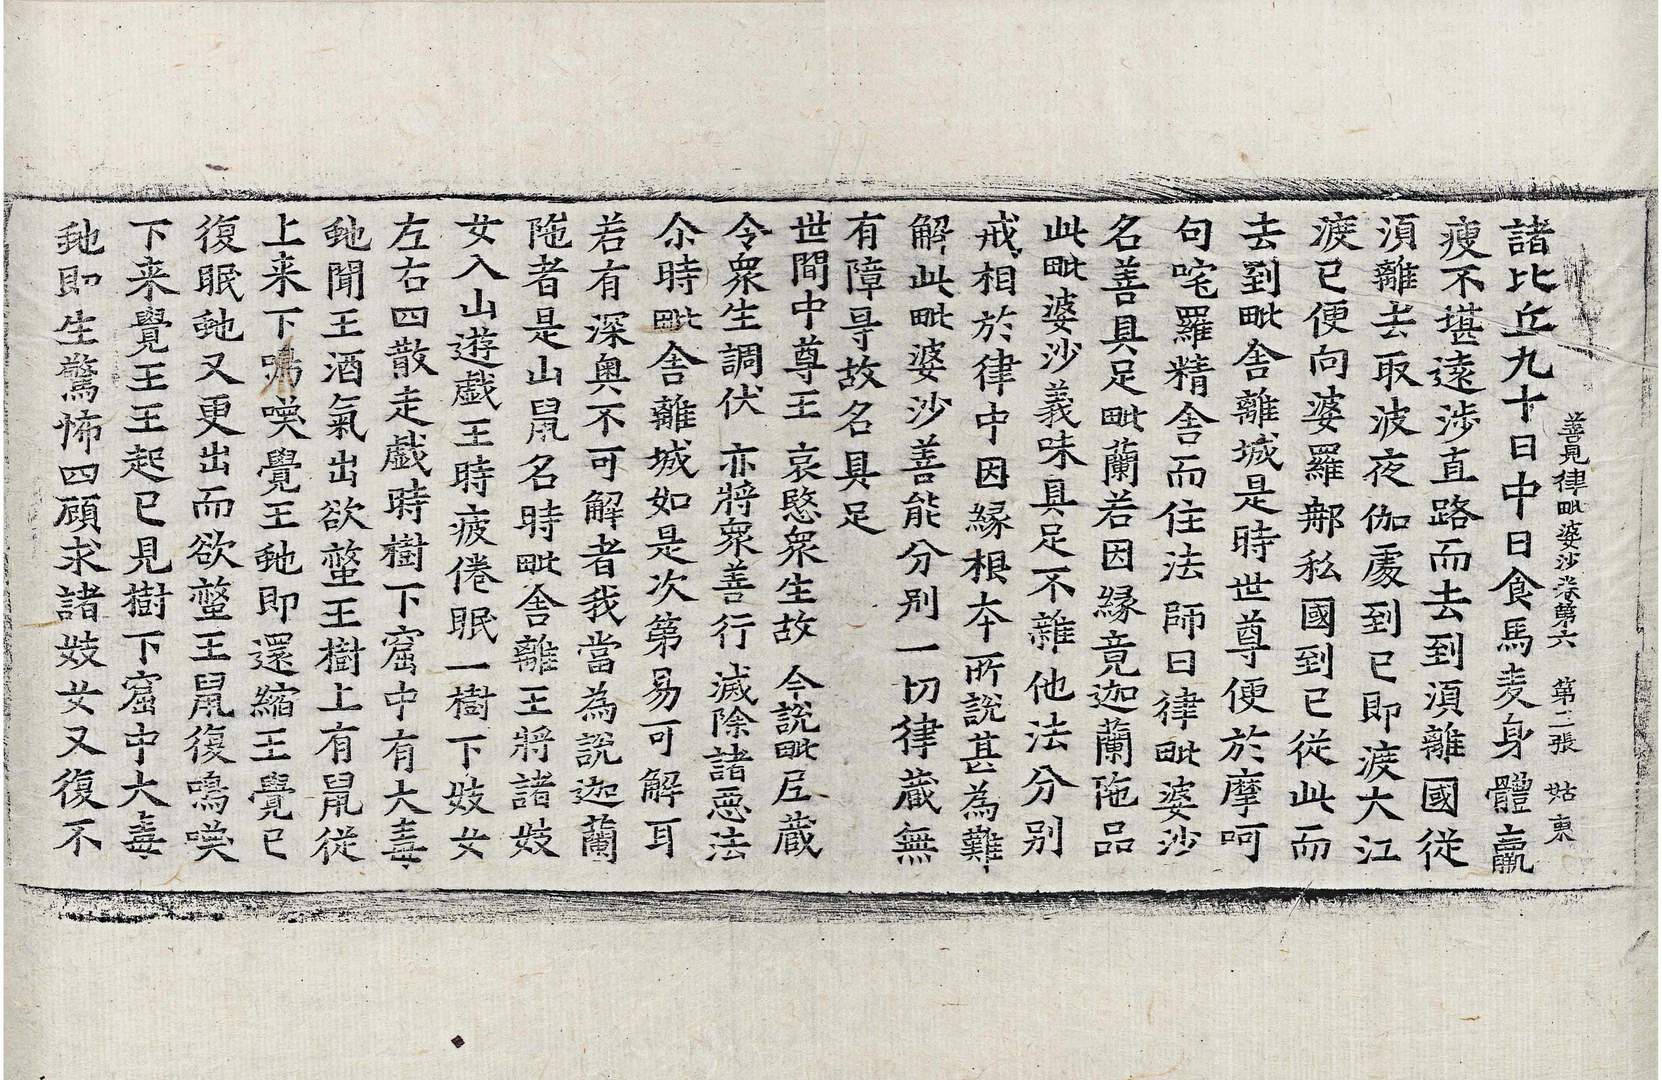 善見律毗婆沙卷第六　第二張　姑　東
諸比丘九十日中日食馬麦身體羸
瘦不堪遠涉直路而去到湏離國従
湏離去取波夜伽處到已即渡大江
渡已便向婆羅𨚗私國到已従此而
去到毗舍離城是時世尊便於摩呵
句咤羅精舍而住法師曰律毗婆沙
名善具足毗蘭若因緣竟迦蘭陁品
此毗婆沙義味具足不雜他法分别
戒相於律中因緣根本所說甚為難
解此毗婆沙善能分别一切律蔵無
有障㝵故名具足
世間中尊王　哀愍衆生故　今說毗𡰱蔵
令衆生調伏　亦將衆善行　滅除諸惡法
尒時毗舍離城如是次第易可解耳
若有深奥不可解者我當為說迦蘭
陁者是山鼠名時毗舍離王將諸妓
女入山遊戯王時疲倦眠一樹下妓女
左右四散走戯時樹下窟中有大毒
虵聞王酒氣出欲螫王樹上有鼠従
上来下鳴唤覺王虵即還縮王覺已
復眠虵又更出而欲螫王鼠復鳴唤
下来覺王王起已見樹下窟中大毒
虵即生驚怖四顧求諸妓女又復不